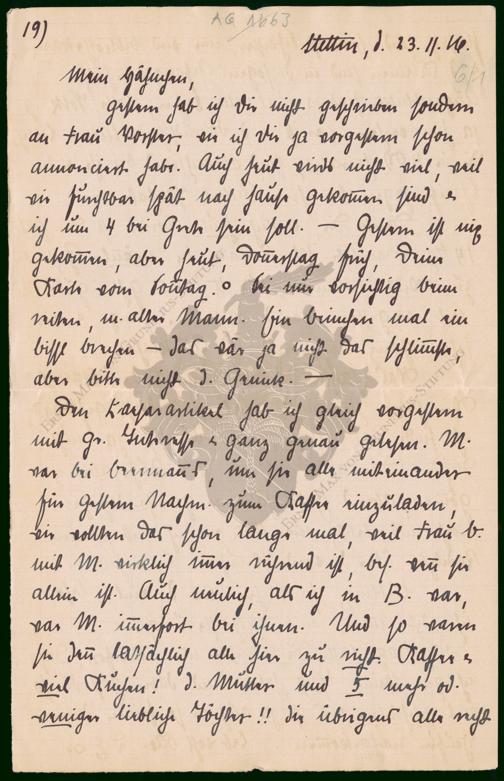 19)
AQ 1663
6/1
Stettin, d. 23.11.16.
Mein Hähnchen,
gestern hab ich dir nicht geschrieben sondern
an Frau Vorster, wie ich dir ja vorgestern schon
annonciert habe. Auch heut wirds nicht viel, weil
wir furchtbar spät nach Hause gekommen sind &
ich um 4 bei Grete sein soll. — Gestern ist nix
gekom̅en, aber heut, Don̅erstag früh, Deine
Karte vom Son̅tag. Sei nur vorsichtig beim
reiten, m. alter Mann. Ein beinchen mal ein
bissl brechen — das wär ja nicht das schlimmste,
aber bitte nicht d. Genick. —
Den Kaiserartikel hab ich gleich vorgestern
mit gr. Interesse & ganz genau gelesen. M.
war bei , um sie alle miteinander
für gestern Nachm. zum Kaffee einzuladen,
wir wollten das schon lange mal, weil Frau b.
mit M. wirklich im̅er rührend ist, bes. wen̅ sie
allein ist. Auch neulich, als ich in B. war,
war M. im̅erfort bei ihnen. Und so waren
sie den̅ tatsächlich alle hier zu richt. Kaffee &
viel Kuchen! d. Mutter und 5 mehr od.
weniger liebliche Töchter!! die übrigens alle recht